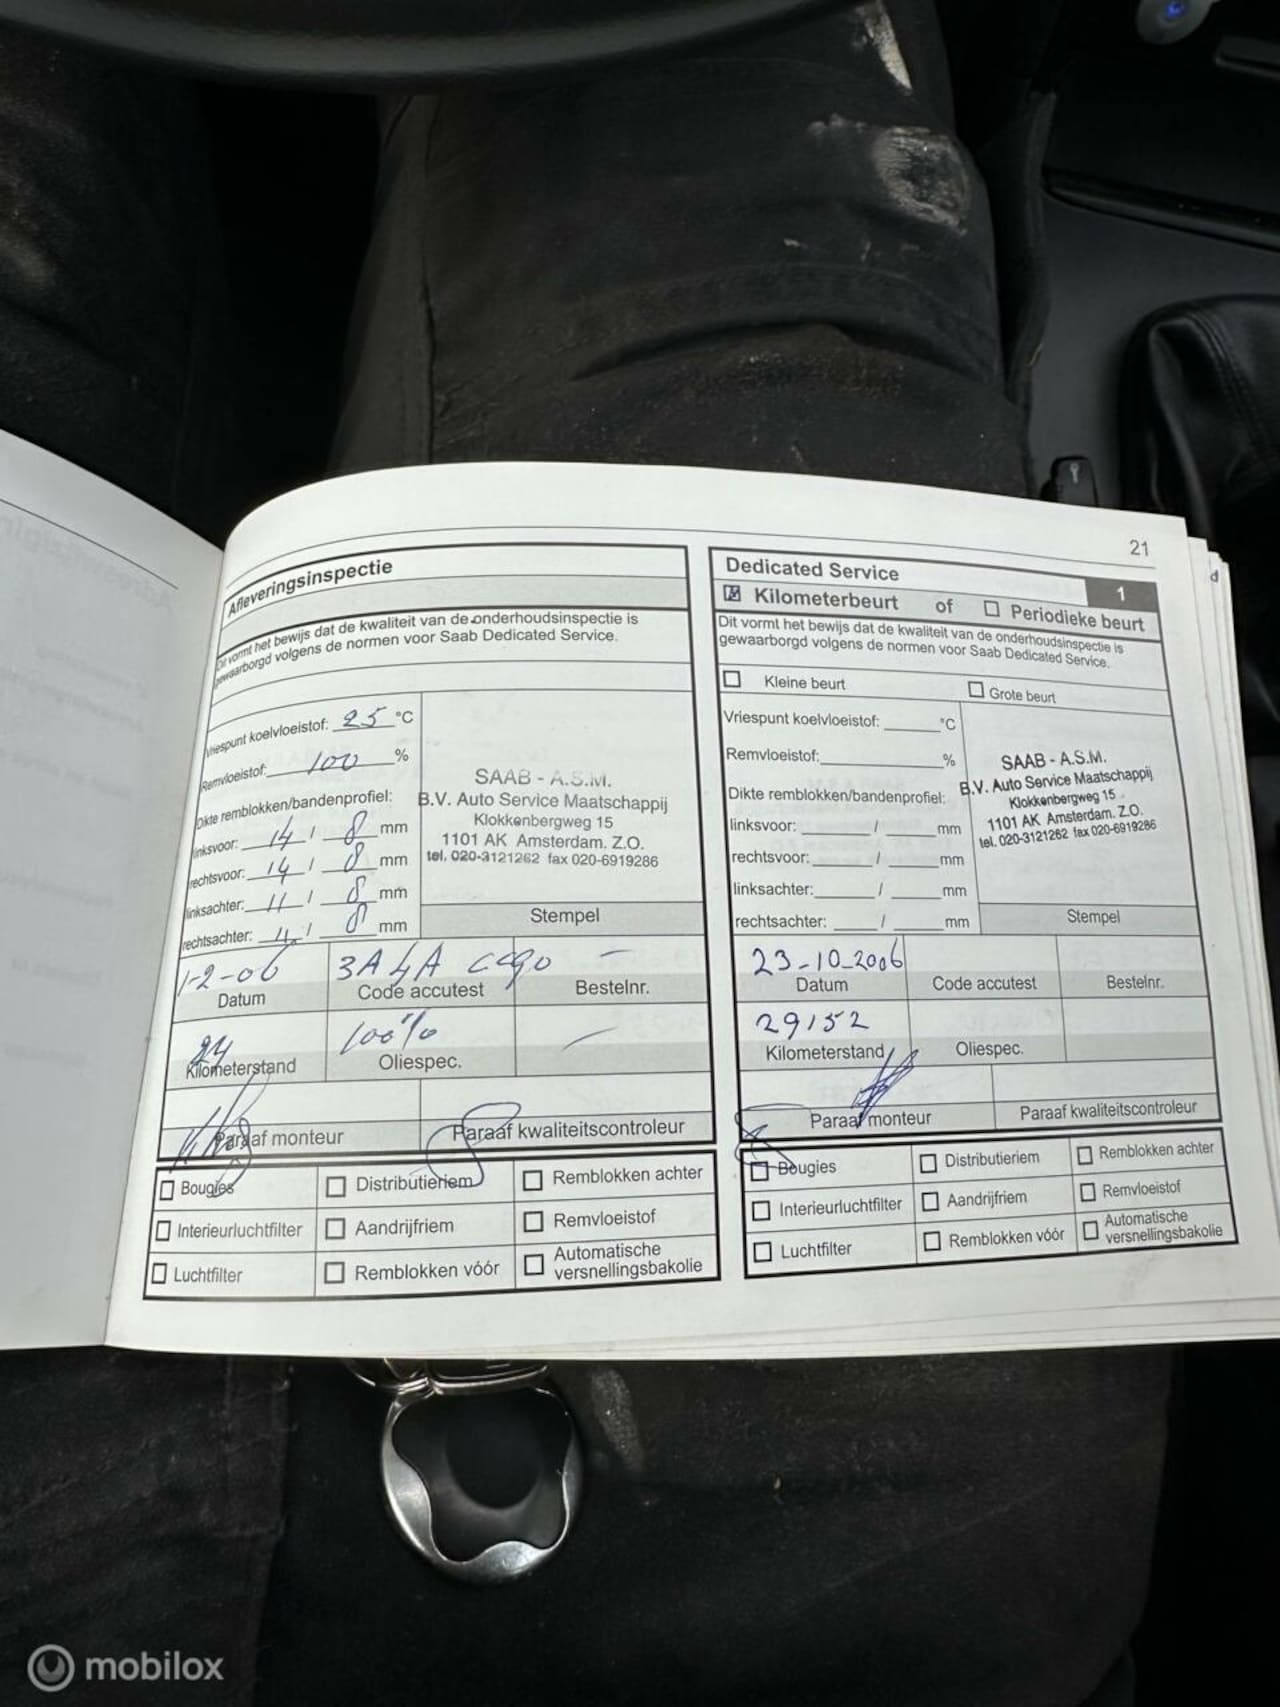 21
Afleveringsinspectie
Dit vormt het bewijs dat de kwaliteit van de onderhoudsinspectie is
gewaarborgd volgens de normen voor Saab Dedicated Service.
Vriespunt koelvloeistof: 25 °C
Remvloeistof: 100 %
Dikte remblokken/bandenprofiel:
linksvoor: 14 / 8 mm
rechtsvoor: 14 / 8 mm
linksachter: 11 / 8 mm
rechtsachter: 11 / 8 mm
SAAB - A.S.M.
B.V. Auto Service Maatschappij
Klokkenbergweg 15
1101 AK Amsterdam. Z.O.
tel. 020-3121262 fax 020-6919286
Stempel
1-2-06
Datum
3A4A
Code accutest
—
Bestelnr.
Kilometerstand
100%
Oliespec.
—
Paraaf monteur
Paraaf kwaliteitscontroleur
Bougies
Distributieriem
Remblokken achter
Interieurluchtfilter
Aandrijfriem
Remvloeistof
Luchtfilter
Remblokken vóór
Automatische
versnellingsbakolie
Dedicated Service
1
Kilometerbeurt of Periodieke beurt
Dit vormt het bewijs dat de kwaliteit van de onderhoudsinspectie is
gewaarborgd volgens de normen voor Saab Dedicated Service.
Kleine beurt
Grote beurt
Vriespunt koelvloeistof: °C
Remvloeistof: %
Dikte remblokken/bandenprofiel:
linksvoor: / mm
rechtsvoor: / mm
linksachter: / mm
rechtsachter: / mm
SAAB - A.S.M.
B.V. Auto Service Maatschappij
Klokkenbergweg 15
1101 AK Amsterdam. Z.O.
tel. 020-3121262 fax 020-6919286
Stempel
23-10-2006
Datum
Code accutest
Bestelnr.
29152
Kilometerstand
Oliespec.
Paraaf monteur
Paraaf kwaliteitscontroleur
Bougies
Distributieriem
Remblokken achter
Interieurluchtfilter
Aandrijfriem
Remvloeistof
Luchtfilter
Remblokken vóór
Automatische
versnellingsbakolie
mobilox